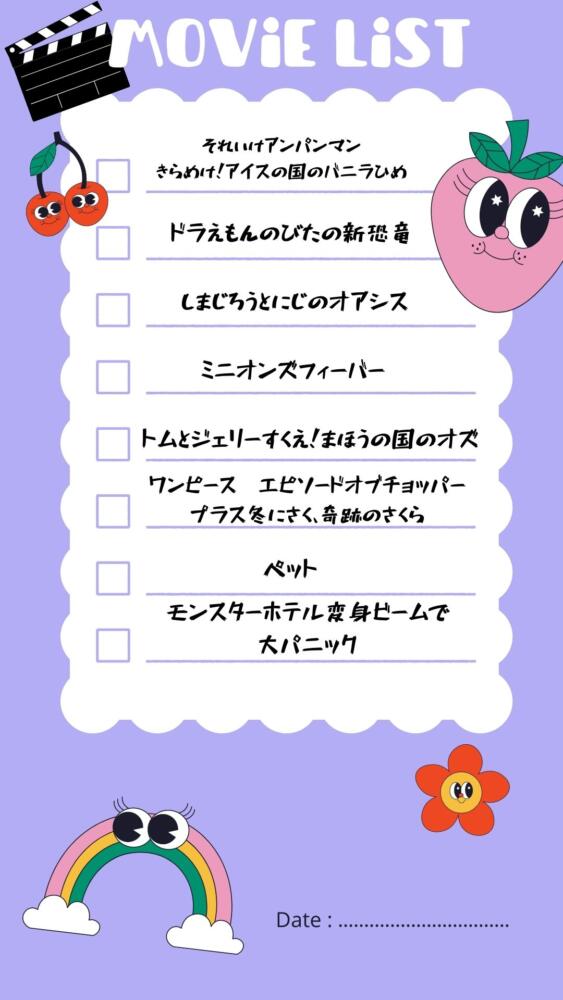 MOViE LiST
それいけアンパンマン
きらめけ!アイスの国のバニラひめ
ドラえもんのびたの新恐竜
しまじろうとにじのオアシス
ミニオンズフィーバー
トムとジェリーすくえ!まほうの国のオズ
ワンピース　エピソードオブチョッパー
プラス冬にさく、奇跡のさくら
ペット
モンスターホテル変身ビームで
大パニック
Date : .................................